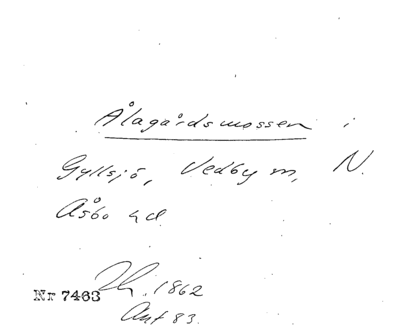 Ålagårdsmossen i
Gyllsjö, Vedby sn, N.
Åsbo hd
Nr 7463 .1862
Ant 83.